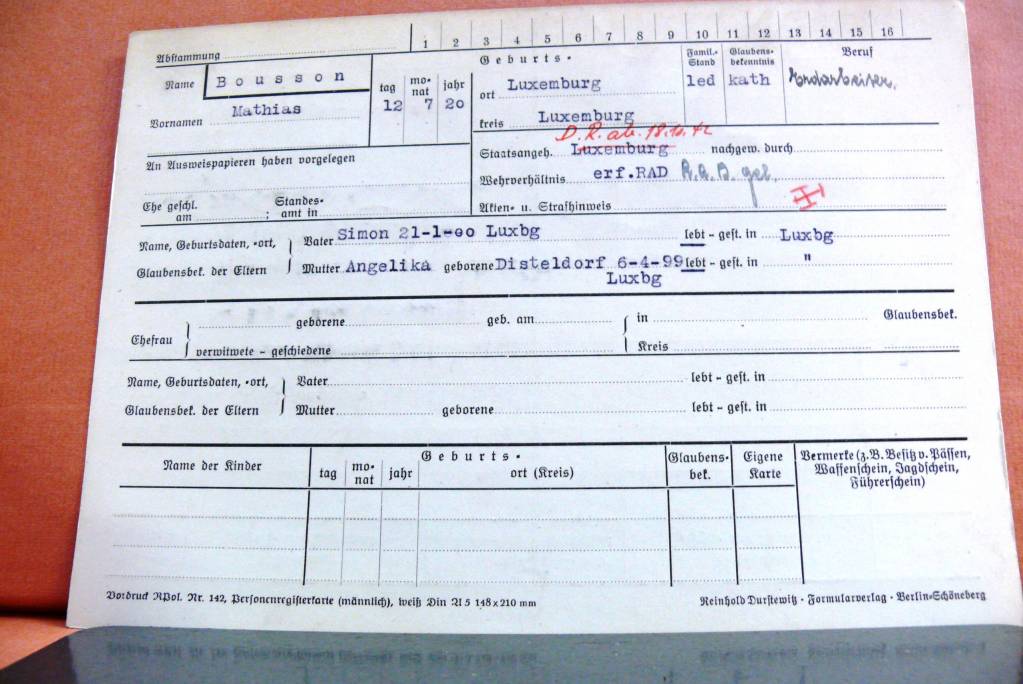 1 2 3 4 5 6 7 8 9 10 11 12 13 14 15 16
Abstammung
Name Bousson
Vornamen Mathias
tag monat jahr
12 7 20
Geburts-
ort Luxemburg
kreis Luxemburg
Famil.-Stand
led
Glaubensbekenntnis
kath
Beruf
Erdarbeiter.
D.R. ab. 18.10.42
Staatsangeh. Luxemburg nachgew. durch
Wehrverhältnis erf.RAD R.A.D gel.
Akten- u. Strafhinweis
An Ausweispapieren haben vorgelegen
Ehe geschl. am ; Standesamt in
Name, Geburtsdaten, -ort, Vater Simon 21-1-00 Luxbg lebt - gest. in Luxbg
Glaubensbek. der Eltern Mutter Angelika geborene Disteldorf 6-4-99 lebt - gest. in "
Luxbg
Ehefrau geborene geb. am in Glaubensbek.
verwitwete - geschiedene Kreis
Name, Geburtsdaten, -ort, Vater lebt - gest. in
Glaubensbek. der Eltern Mutter geborene lebt - gest. in
Name der Kinder
Geburts-
tag monat jahr ort (Kreis)
Glaubensbek.
Eigene Karte
Vermerke (z.B. Besitz v. Pässen,
Waffenschein, Jagdschein,
Führerschein)
Vordruck RPol. Nr. 142, Personenregisterkarte (männlich), weiß Din A 5 148x210 mm
Reinhold Durstewitz · Formularverlag · Berlin-Schöneberg